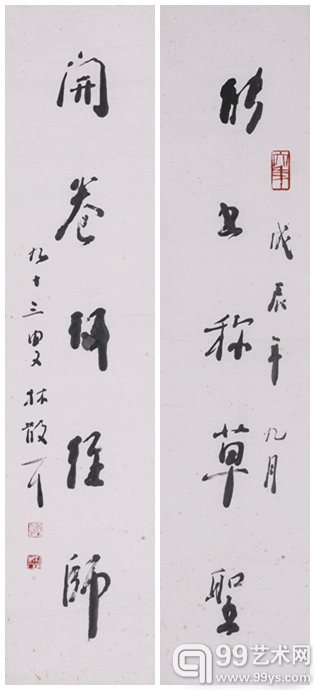 能書称草聖
戊辰年九月
開卷經師
九十三叟林散耳
99艺术网
www.99ys.com